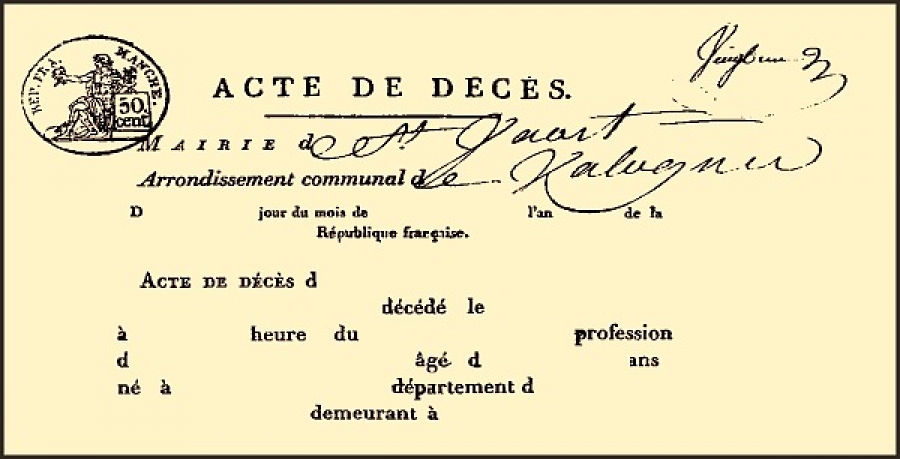 Vingt un
RÉP. FRA. MANCHE.
50. cent.
ACTE DE DÉCÈS.
MAIRIE de St. Vaast
Arrondissement communal de Valognes
D jour du mois de l'an de la
République française.
ACTE DE DÉCÈS d
décédé le
à heure du profession
d âgé d ans
né à département d
demeurant à